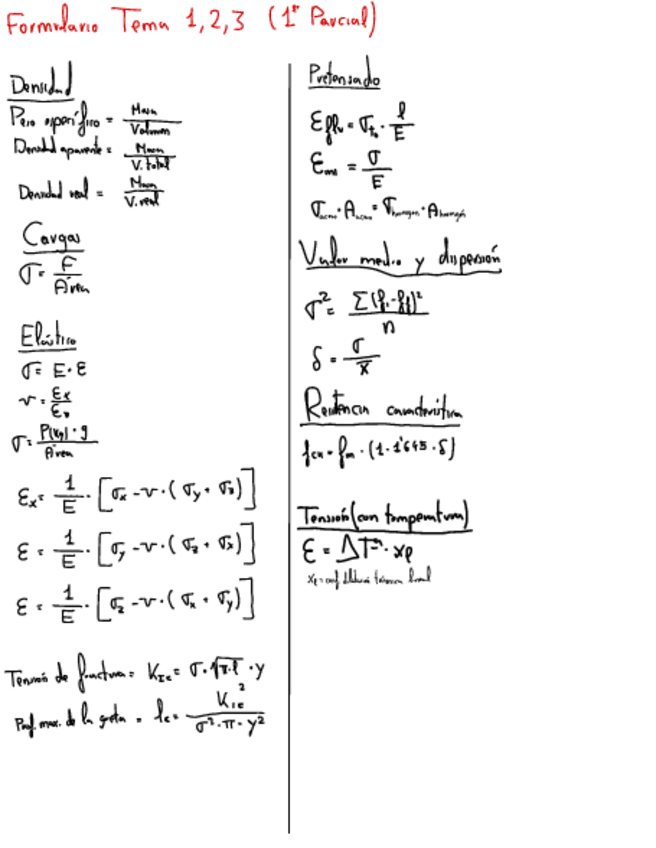 Formulario Tema 1,2,3 (1er Parcial)
Densidad
Peso específico = Masa / Volumen
Densidad aparente = Masa / V. total
Densidad real = Masa / V. real
Cargas
σ = F / Área
Elástico
σ = E · ε
ν = εx / εz
σ = P(kg) · g / Área
εx = 1/E · [σx - ν · (σy + σz)]
ε = 1/E · [σy - ν · (σz + σx)]
ε = 1/E · [σz - ν · (σx + σy)]
Tensión de fractura = KIc = σ · √π·l · y
Prof. max. de la grieta = lc = KIc² / σ² · π · y²
Pretensado
= σt0 · l / E
= σ / E
σacero · Aacero = σhormigón · Ahormigón
Valor medio y dispersión
σ² = Σ(fi - f)² / n
δ = σ / x̄
Resistencia característica
fck = fm · (1 - 1'645 · δ)
Tensión (con temperatura)
ε = ΔT · xl
xl = coef dilatación térmica lineal